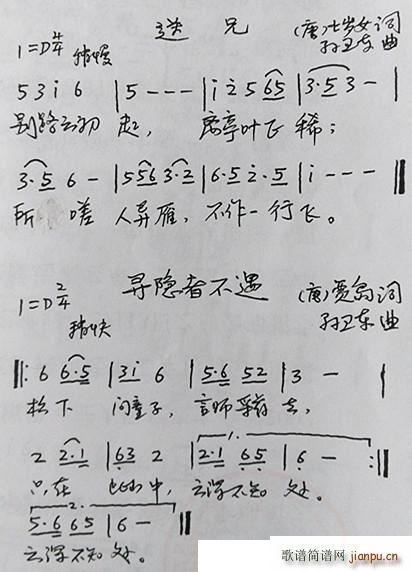 送兄
(唐)七岁女 词
1=D 4/4 稍慢
孙卫东 曲
5 3 i 6 | 5 - - - | i 2 5 65 | 3·5 3 - |
别路云初 起, 离亭叶飞 稀;
3·5 6 - | 556 3·2 | 6·5 2·5 | i - - - ‖
所 嗟 人异雁, 不作一行飞。
寻隐者不遇
(唐)贾岛 词
1=D 2/4 稍快
孙卫东 曲
‖: 6 6·5 | 3i 6 | 5·6 52 | 3 - |
松下 问童子, 言师采药 去,
2 2·1 | 63 2 | 1. 2·1 65 | 6 - :‖
只在 此山中, 云深不知 处。
2. 5·6 65 | 6 - ‖
云深不知 处。
歌谱简谱网
jianpu.cn